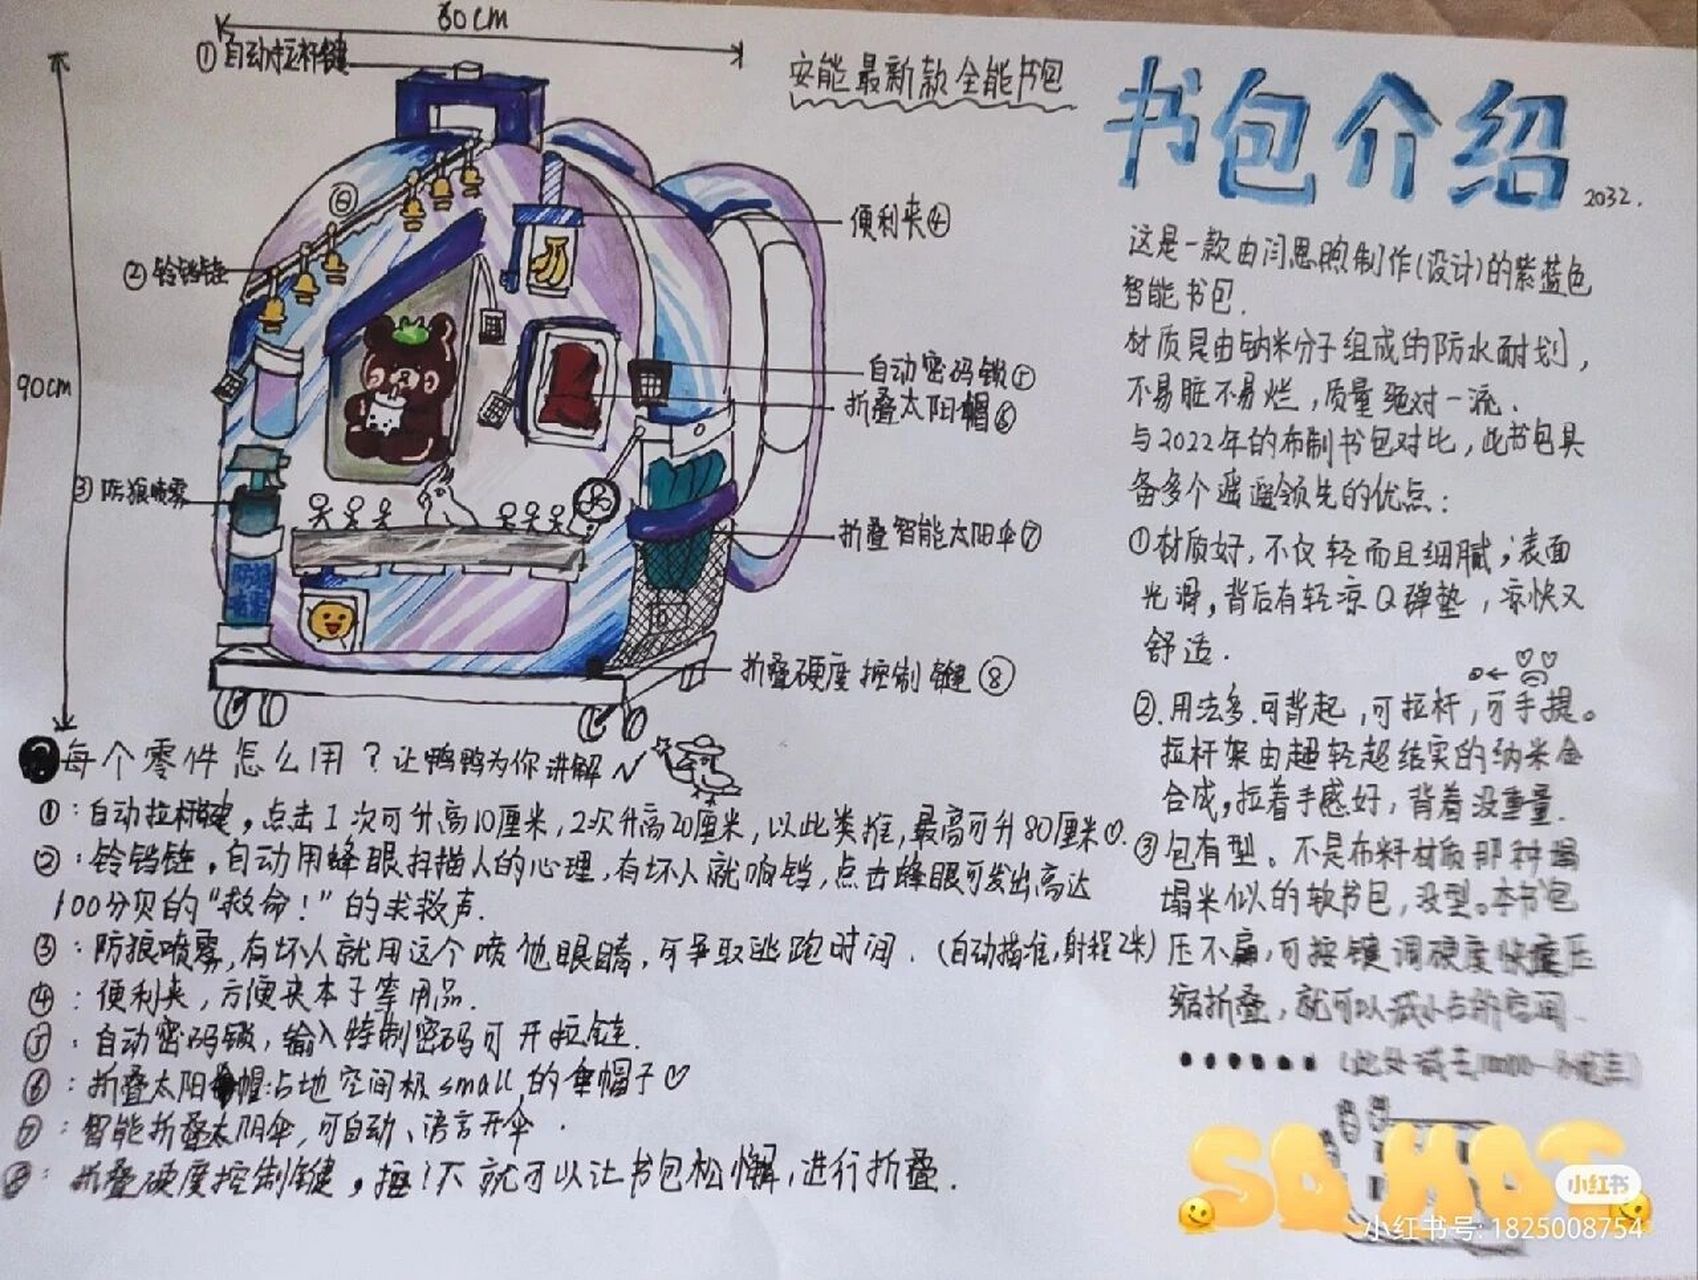 60cm
①自动拉杆键
安能最新款全能书包
书包介绍
2032.
便利夹④
②铃铛链
自动密码锁⑤
折叠太阳帽⑥
90cm
③防狼喷雾
折叠智能太阳伞⑦
折叠硬度控制键⑧
这是一款由闫思煦制作(设计)的紫蓝色
智能书包.
材质是由钠米分子组成的防水耐划,
不易脏不易烂,质量绝对一流.
与2022年的布制书包对比,此书包具
备多个遥遥领先的优点:
①材质好,不仅轻而且细腻;表面
光滑,背后有轻凉Q弹垫,凉快又
舒适.
②.用法多.可背起,可拉杆,可手提。
拉杆架由超轻超结实的纳米金
合成,拉着手感好,背着没重量.
③包有型。不是布料材质那种塌
塌米似的软书包,没型。本书包
压不扁,可按键调硬度快速压
缩折叠,就可以减小占的空间.
••••••(此处减去10000
每个零件怎么用?让鸭鸭为你讲解
①:自动拉杆键,点击1次可升高10厘米,2次升高20厘米,以此类推,最高可升80厘米♡.
②:铃铛链,自动用蜂眼扫描人的心理,有坏人就响铛,点击蜂眼可发出高达
100分贝的“救命!”的求救声.
③:防狼喷雾,有坏人就用这个喷他眼睛,可争取逃跑时间.(自动描准,射程2米)
④:便利夹,方便夹本子等用品.
⑤:自动密码锁,输入特制密码可开拉链.
⑥:折叠太阳帽:占地空间极small的伞帽子♡
⑦:智能折叠太阳伞,可自动、语言开伞.
⑧:折叠硬度控制键,按1下就可以让书包松懈,进行折叠.
SO HOT
小红书
小红书号: 1825008754